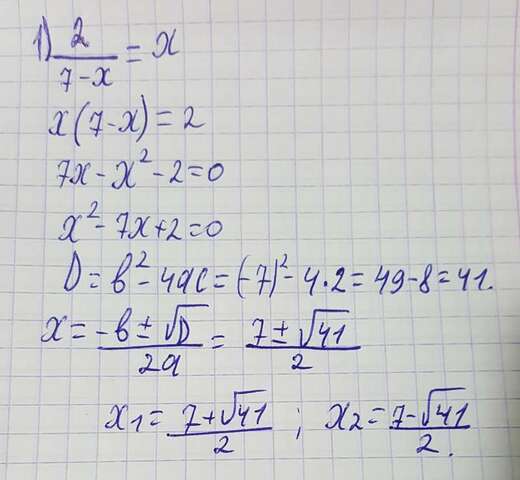 1) 2/(7-x) = x
x(7-x) = 2
7x - x² - 2 = 0
x² - 7x + 2 = 0
D = b² - 4ac = (-7)² - 4·2 = 49 - 8 = 41.
x = (-b ± √D)/(2a) = (7 ± √41)/2
x₁ = (7 + √41)/2 ; x₂ = (7 - √41)/2.